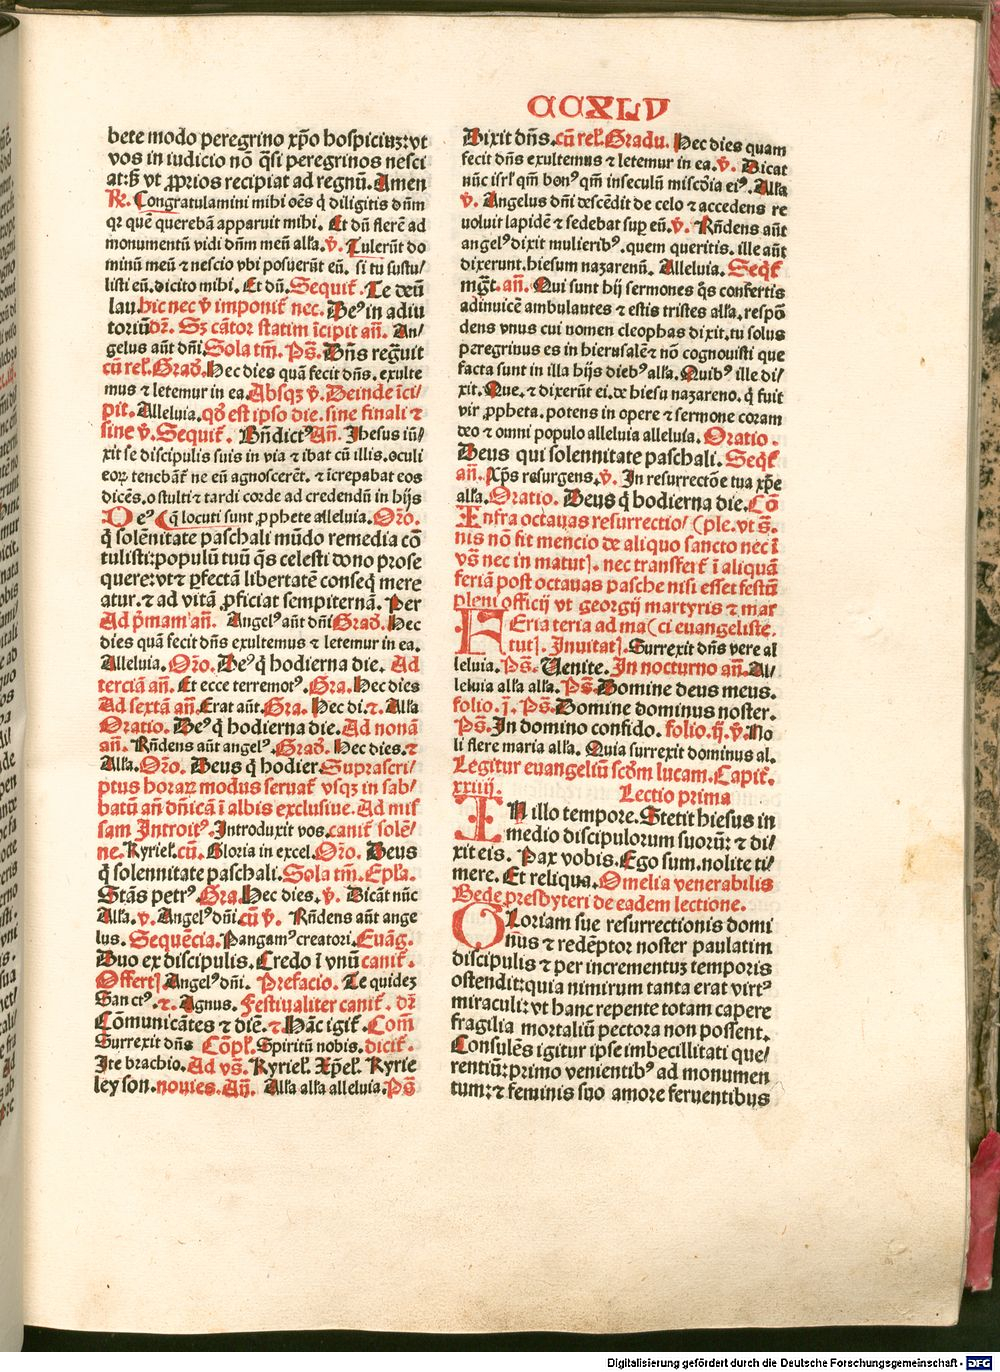 CCXLV
bete modo peregrino xp̄o hospiciuȝ: vt
vos in iudicio nō q̄si peregrinos nesci
at: sȝ vt ꝓprios recipiat ad regnū. Amen
R. Congratulamini mihi oēs q̄ diligitis dn̄m
qꝛ quē querebā apparuit mihi. Et dū flerē ad
monumentū vidi dn̄m meū alla. v̄. Tulerūt do
minū meū ⁊ nescio vbi posuerūt eū. si tu sustu/
listi eū. dicito mihi. Et dū. Sequit̄. Te deū
lau. hic nec v̄ imponit̄ nec. Deꝰ in adiu
toriū dꝛ̄. Sȝ cātor statim īcipit an̄. An/
gelus aūt dn̄i. Sola tm̄. Ps̄. Dn̄s regīuit
cū rel. Grad̄. Hec dies quā fecit dn̄s. exulte
mus ⁊ letemur in ea. Absqȝ v̄. Deinde īci/
pit. Alleluia. qd̄ est ipso die. sine finali ⁊
sine v̄. Sequit̄. Bn̄dictꝰ. An̄. Jhesus iū/
xit se discipulis suis in via ⁊ ibat cū illis. oculi
eoꝝ tenebāt̄ ne eū agnoscerēt. ⁊ īcrepabat eos
dicēs. o stulti ⁊ tardi corde ad credendū in hijs
Deꝰ ( q̄ locuti sunt ꝓphete alleluia. Oro̅.
q̄ solēnitate paschali mūdo remedia cō
tulisti: populū tuū q̄s celesti dono prose
quere: vt ⁊ ꝑfectā libertatē conseq̄ mere
atur. ⁊ ad vitā ꝓficiat sempiternā. Per
Ad p̄mam an̄. Angelꝰ aūt dn̄i Grad̄. Hec
dies quā fecit dn̄s exultemus ⁊ letemur in ea.
Alleluia. Oro̅. Deꝰ q̄ hodierna die. Ad
terciā an̄. Et ecce terremotꝰ. Gra. Hec dies
Ad sextā an̄. Erat aūt. Gra. Hec di. ⁊. Alla
Oratio. Deꝰ q̄ hodierna die. Ad nonā
an̄. Rn̄dens aūt angelꝰ. Grad̄. Hec dies. ⁊
Alla. Oro̅. Deus q̄ hodier. Suprascri/
ptus horaꝝ modus seruat̄ vsqȝ in sab/
batū an̄ dn̄icā ī albis exclusiue. Ad mis
sam Introitꝰ. Introduxit vos. canit̄ solē/
ne. Kyriel. cū. Gloria in excel. Oro̅. Deus
q̄ solennitate paschali. Sola tm̄. Epl̄a.
Stās petrꝰ. Gra. Hec dies. v̄. Dicāt nūc
Alla. v̄. Angelꝰ dn̄i. cū v̄. Rn̄dens aūt ange
lus. Sequēcia. Pangamꝰ creatori. Euāg.
Duo ex discipulis. Credo ī vnū canit̄.
Offert. Angelꝰ dn̄i. Prefacio. Te quideȝ
Sanctꝰ. ⁊. Agnus. Festiualiter canit̄. dꝛ̄
Cōmunicātes ⁊ diē. ⁊ Hāc igit̄. Com̄
Surrexit dn̄s Cōpl. Spiritū nobis. dicit̄.
Ite brachio. Ad vs̄. Kyriel. Xp̄el. Kyrie
leyson. nouies. An̄. Alla alla alleluia. Ps̄
Dixit dn̄s. cū rel. Gradu. Hec dies quam
fecit dn̄s exultemus ⁊ letemur in ea. v̄. Dicat
nūc isrl̄ qm̄ bonꝰ qm̄ in seculū miscd̄ia eiꝰ. Alla
v̄. Angelus dn̄i descēdit de celo ⁊ accedens re
uoluit lapidē ⁊ sedebat suꝑ eū. v̄. Rn̄dens aūt
angelꝰ dixit mulieribꝰ. quem queritis. ille aūt
dixerunt. hiesum nazarenū. Alleluia. Seq̄t̄
mḡt. an̄. Qui sunt hij sermones q̄s confertis
adinuicē ambulantes ⁊ estis tristes alla. respō
dens vnus cui nomen cleophas dixit. tu solus
peregrinus es in hierusalē ⁊ nō cognouisti que
facta sunt in illa hijs diebꝰ alla. Quibꝰ ille di/
xit. Que. ⁊ dixerūt ei. de hiesu nazareno. q̄ fuit
vir ꝓpheta. potens in opere ⁊ sermone coram
deo ⁊ omni populo alleluia alleluia. Oratio.
Deus qui solennitate paschali. Seq̄t̄
an̄. Xp̄s resurgens. v̄. In resurrectōe tua xp̄e
alla. Oratio. Deus q̄ hodierna die. Cō
Infra octauas resurrectio/ (ple. vt s̄.
nis nō fit mencio de aliquo sancto nec ī
vs̄ nec in matut. nec transfert̄ ī aliquā
feriā post octauas pasche nisi esset festū
pleni officij vt georgij martyris ⁊ mar
Feria teria ad ma ( ci euangeliste.
tut. Inuitat. Surrexit dn̄s vere al
leluia. Ps̄. Venite. In nocturno an̄. Al/
leluia alla alla. Ps̄. Domine deus meus.
folio. j. Ps̄. Domine dominus noster.
Ps̄. In domino confido. folio. ij. v̄. No
li flere maria alla. Quia surrexit dominus al.
Legitur euangeliū scd̄m lucam. Capit̄.
xxiiij. Lectio prima
IN illo tempore. Stetit hiesus in
medio discipulorum suorū: ⁊ di/
xit eis. Pax vobis. Ego sum. nolite ti/
mere. Et reliqua. Omelia venerabilis
Bede presbyteri de eadem lectione.
GLoriam sue resurrectionis domi
nꝰs ⁊ redēptor noster paulatim
discipulis ⁊ per incrementuȝ temporis
ostendit: quia nimirum tanta erat virtꝰ
miraculi: vt hanc repente totam capere
fragilia mortaliū pectora non possent.
Consulēs igitur ipse imbecillitati que/
rentiū: primo venientibꝰ ad monumen
tum: ⁊ feminis suo amore feruentibus
Digitalisierung gefördert durch die Deutsche Forschungsgemeinschaft - DFG